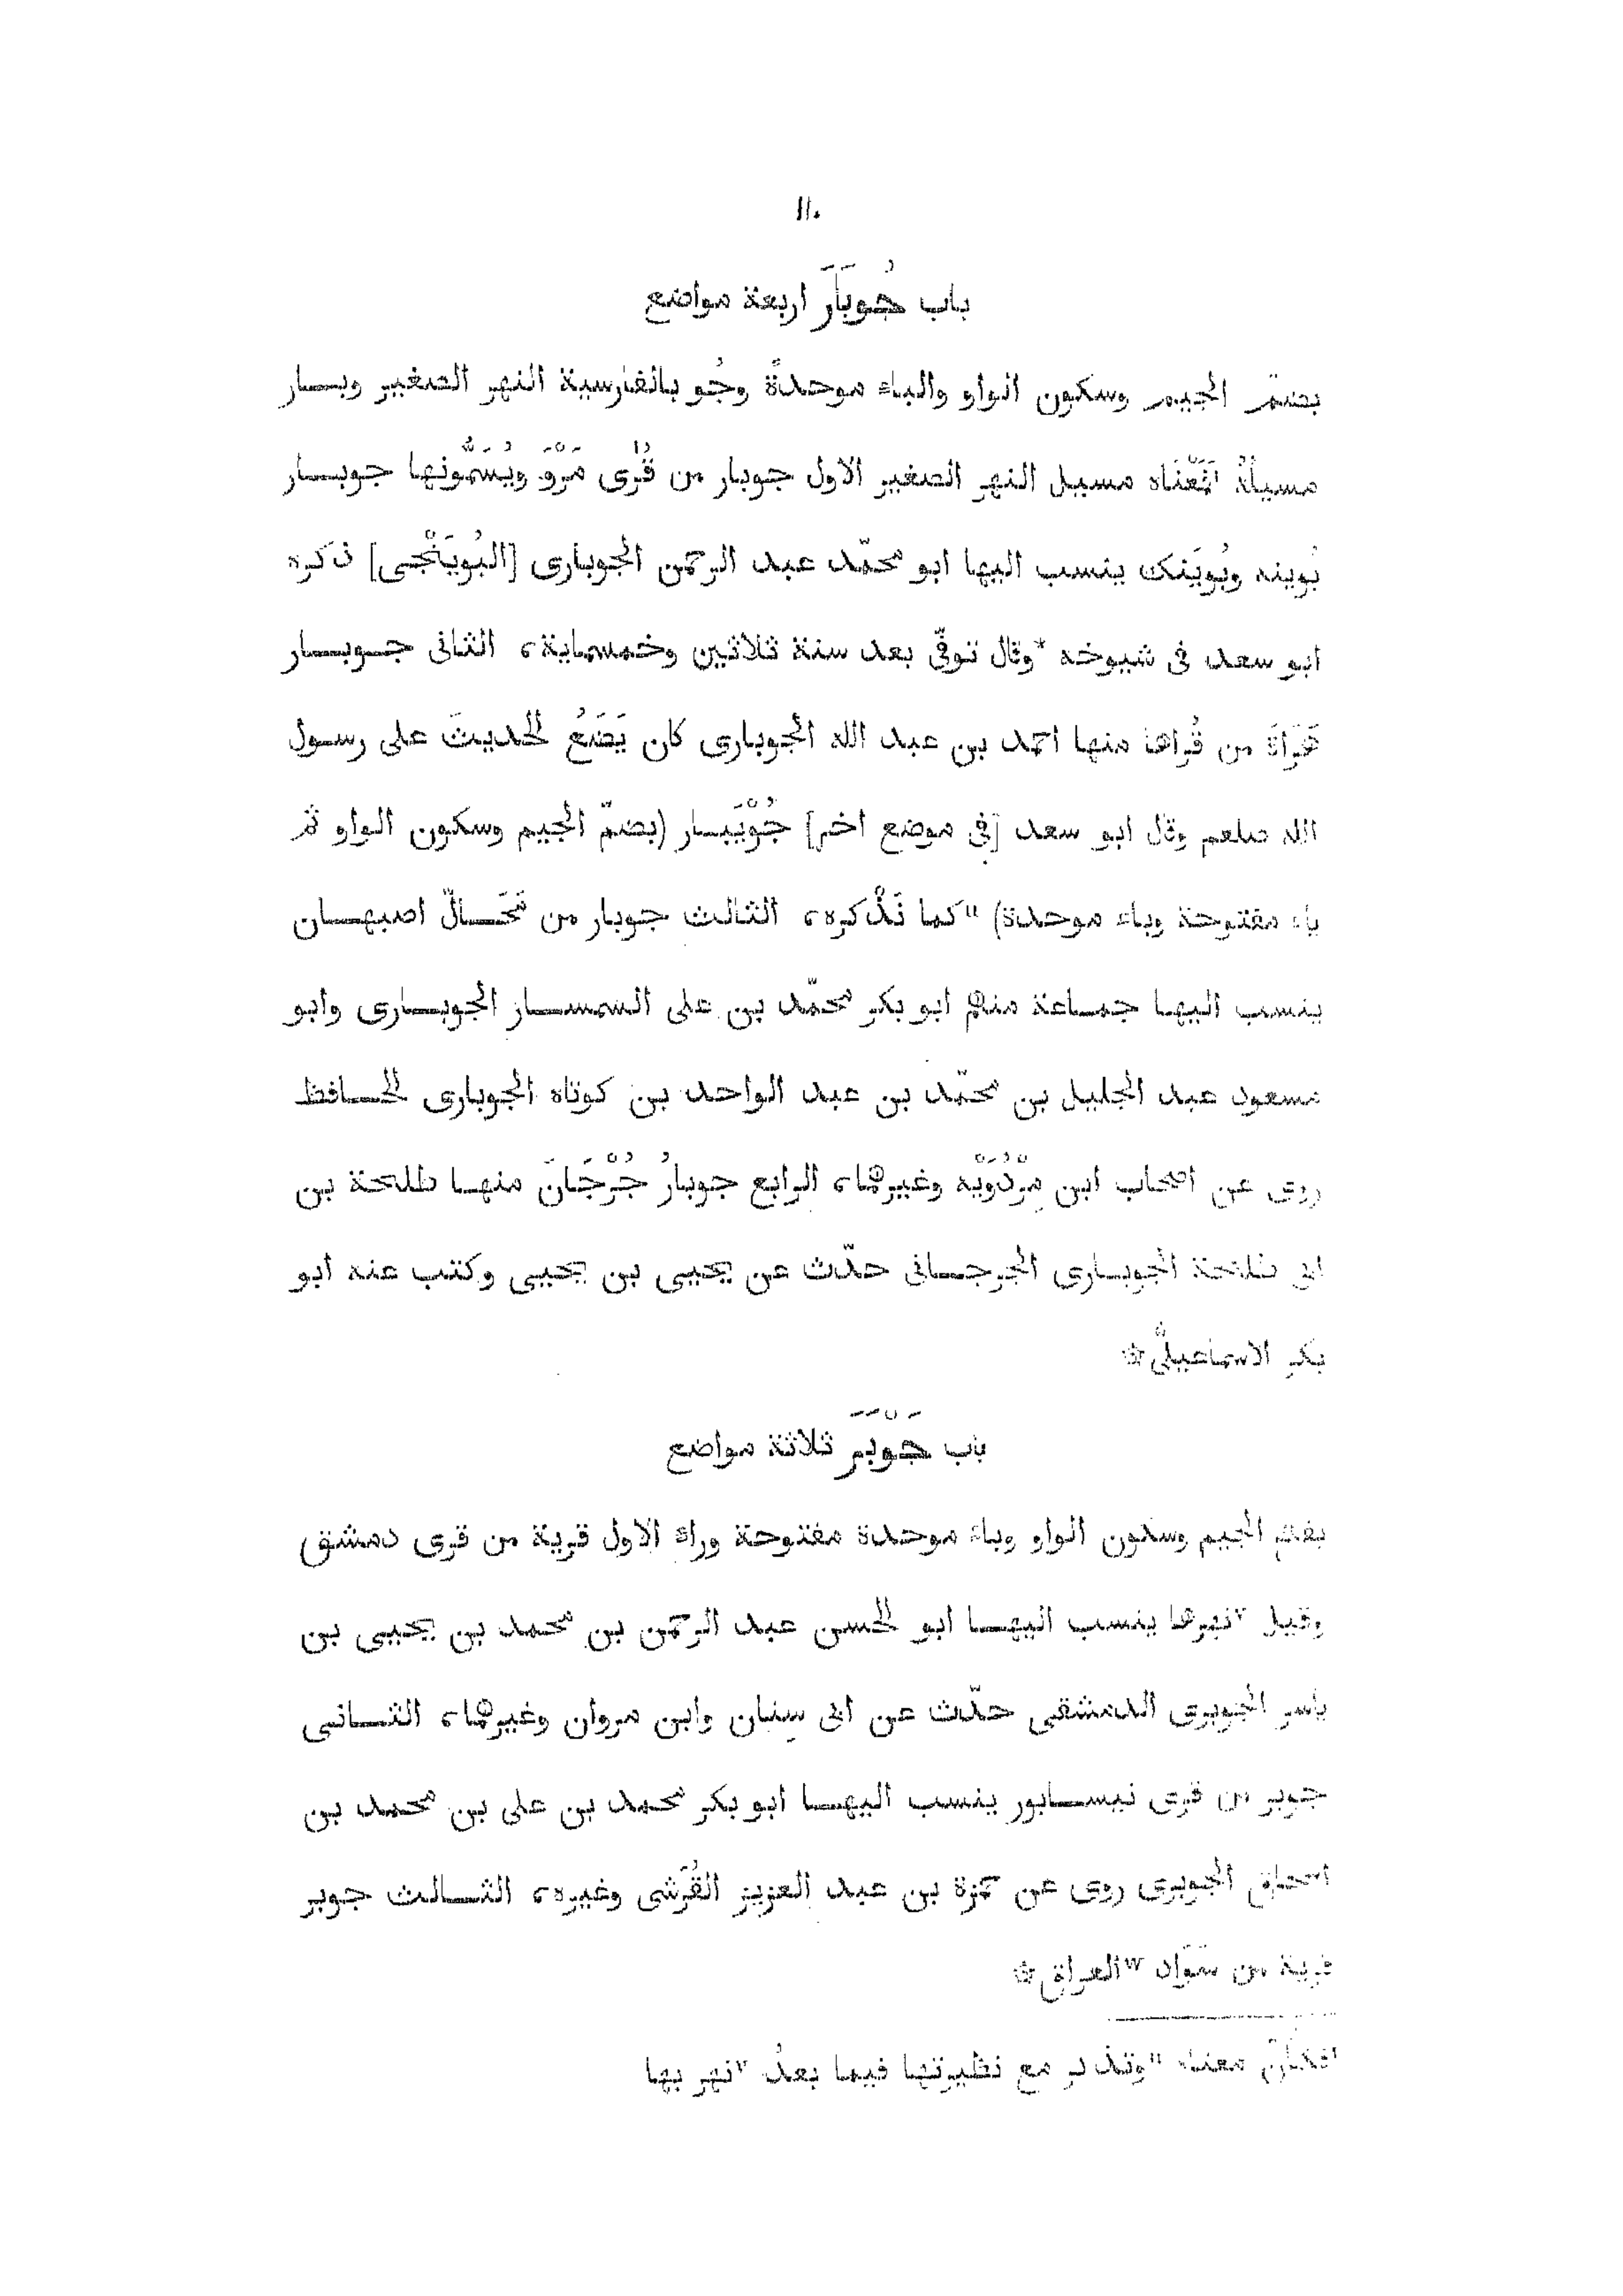 ١١٠
باب جُوبَارَ اربعة مواضع
بضمّ الجيم وسكون الواو والباء موحدةً وجُو بالفارسية النهر الصغير وبـار
مسيلُهُ فمَعْنَاه مسيل النهر الصغير الاول جوبار من قُرَى مَرْوَ ويُسَمُّونها جوبـار
بُوينه وبُويَنك ينسب اليها ابو محمّد عبد الرحمن الجوبارى [البُويَنْجى] ذكره
ابو سعد فى شيوخه *وقال توفّى بعد سنة ثلاثين وخمسماية، الثانى جـوبـار
هَرَاةَ من قُراها منها احمد بن عبد الله الجوبارى كان يَضَعُ الحديثَ على رسول
الله صلعم وقال ابو سعد [فى موضع اخر] جُوْيَبـار (بضمّ الجيم وسكون الواو ثم
ياء مفتوحة وباء موحدة) "كما نَذْكره، الثالث جوبار من مَحَـالّ اصبهـان
ينسب اليهـا جمـاعة منهم ابو بكر محمّد بن على السمسـار الجوبـارى وابو
مسعود عبد الجليل بن محمّد بن عبد الواحد بن كوتاه الجوبارى الحـافظ
روى عن اصحاب ابن مَرْدُوَيْه وغيرهما، الرابع جوبارُ جُرْجَانَ منهـا طلحة بن
ابى طلحة الجوبـارى الجرجـانى حدّث عن يحيى بن يحيى وكتب عنه ابو
بكر الاسماعيلىُّ ۞
باب جَوْبَر ثلاثة مواضع
بفتح الجيم وسكون الواو وباء موحدة مفتوحة وراء الاول قرية من قرى دمشق
وقيل ⱽنهرها ينسب اليهـا ابو الحسن عبد الرحمن بن محمد بن يحيى بن
ياسر الجوبرى الدمشقى حدّث عن ابى سِنان وابن مروان وغيرهما، الثـانى
جوبر من قرى نيسـابور ينسب اليهـا ابو بكر محمد بن على بن محمد بن
اسحاق الجوبرى روى عن حمزة بن عبد العزيز القُرَشى وغيره، الثـالث جوبر
قرية من سَوَاد ʷالعراق ۞
معناه "وتذكر مع نظيرتها فيما بعدُ ⱽنهر بها